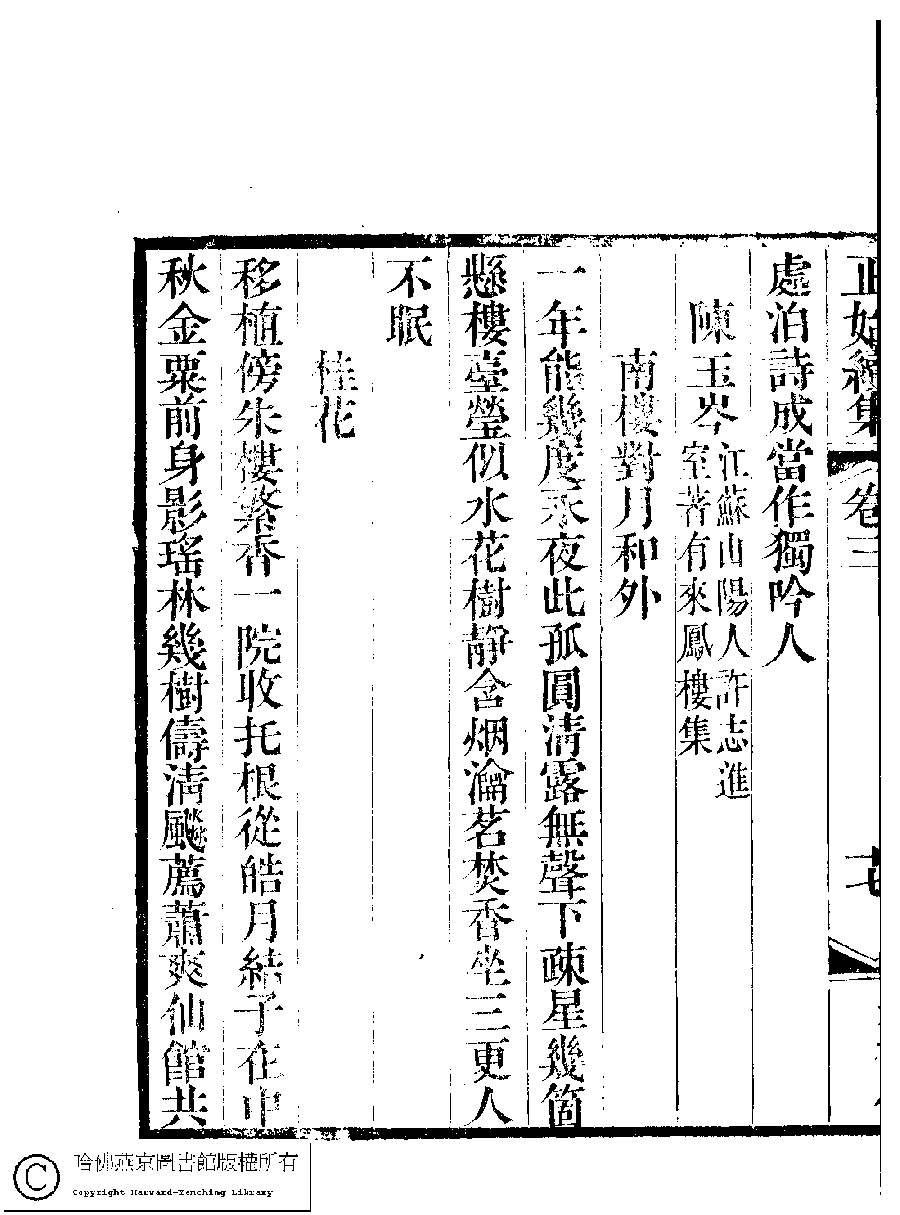 正始續集 卷三 十七
處泊詩成當作獨吟人
陳玉岑 江蘇山陽人許志進
室著有來鳳樓集
南樓對月和外
一年能幾度永夜此孤圓清露無聲下疎星幾箇
懸樓臺瑩似水花樹靜含烟瀹茗焚香坐三更人
不眠
桂花
移植傍朱樓繁香一院收托根從皓月結子在中
秋金粟前身影瑤林幾樹儔淸飈薦蕭爽仙館共
哈佛燕京圖書館版權所有
Copyright Harvard-Yenching Library